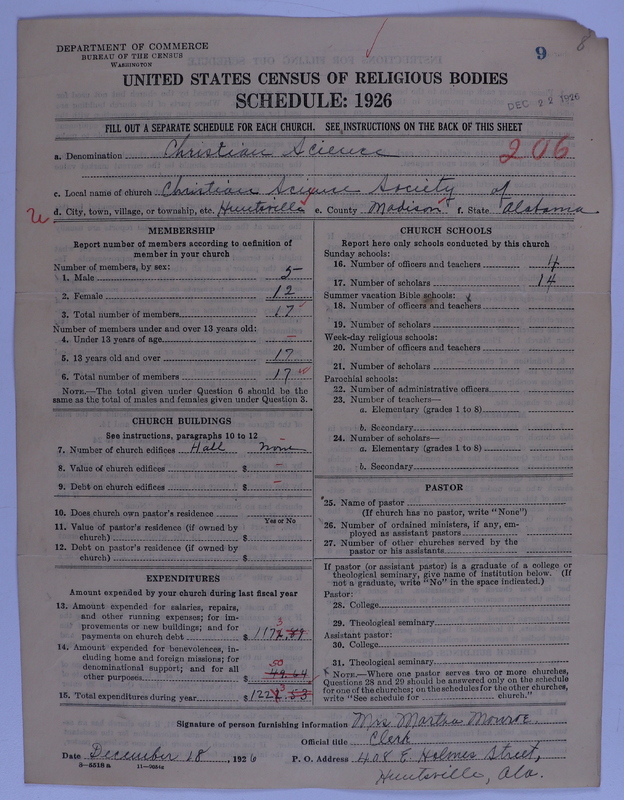 DEPARTMENT OF COMMERCE
BUREAU OF THE CENSUS
WASHINGTON
9
8
UNITED STATES CENSUS OF RELIGIOUS BODIES
SCHEDULE: 1926
DEC 22 1926
FILL OUT A SEPARATE SCHEDULE FOR EACH CHURCH. SEE INSTRUCTIONS ON THE BACK OF THIS SHEET
a. Denomination Christian Science 206
c. Local name of church Christian Science Society of
d. City, town, village, or township, etc. Huntsville e. County Madison f. State Alabama
MEMBERSHIP
Report number of members according to definition of
member in your church
Number of members, by sex:
1. Male 5
2. Female 12
3. Total number of members 17
Number of members under and over 13 years old:
4. Under 13 years of age –
5. 13 years old and over 17
6. Total number of members 17
NOTE.—The total given under Question 6 should be the
same as the total of males and females given under Question 3.
CHURCH BUILDINGS
See instructions, paragraphs 10 to 12
7. Number of church edifices Hall none
8. Value of church edifices $ –
9. Debt on church edifices $ –
10. Does church own pastor's residence
Yes or No
11. Value of pastor's residence (if owned by
church) $
12. Debt on pastor's residence (if owned by
church) $
EXPENDITURES
Amount expended by your church during last fiscal year
13. Amount expended for salaries, repairs,
and other running expenses; for im-
provements or new buildings; and for
payments on church debt $ 117
3
14. Amount expended for benevolences, in-
cluding home and foreign missions; for
denominational support; and for all
other purposes $ 49.64
50
15. Total expenditures during year $ 122
3
CHURCH SCHOOLS
Report here only schools conducted by this church
Sunday schools:
16. Number of officers and teachers 4
17. Number of scholars 14
Summer vacation Bible schools:
18. Number of officers and teachers
19. Number of scholars
Week-day religious schools:
20. Number of officers and teachers
21. Number of scholars
Parochial schools:
22. Number of administrative officers
23. Number of teachers—
a. Elementary (grades 1 to 8)
b. Secondary
24. Number of scholars—
a. Elementary (grades 1 to 8)
b. Secondary
PASTOR
*25. Name of pastor
(If church has no pastor, write "None")
26. Number of ordained ministers, if any, em-
ployed as assistant pastors
27. Number of other churches served by the
pastor or his assistants
If pastor (or assistant pastor) is a graduate of a college or
theological seminary, give name of institution below. (If
not a graduate, write "No" in the space indicated.)
Pastor:
28. College
29. Theological seminary
Assistant pastor:
30. College
31. Theological seminary
* NOTE.—Where one pastor serves two or more churches,
Questions 28 and 29 should be answered only on the schedule
for one of the churches; on the schedules for the other churches,
write "See schedule for church."
Signature of person furnishing information Mrs Martha Monroe
Official title Clerk
Date December 18, 1926 P. O. Address 408 E Holmes Street,
8—5518a 11—9054a
Huntsville, Ala.